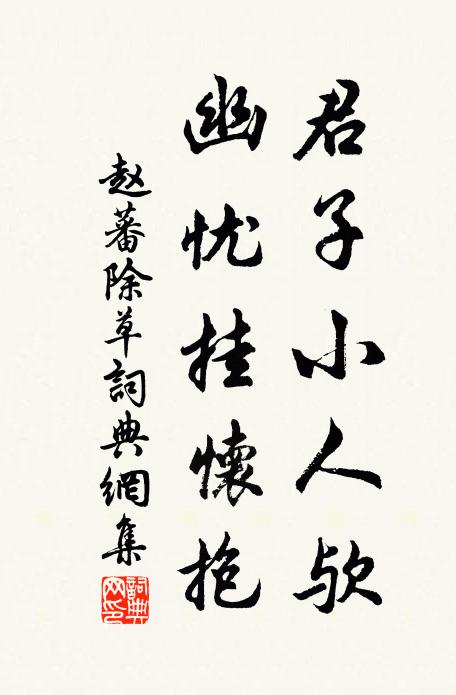 君子小人欤
幽忧挂懷抱
赵蕃除草詞典網集
詞典网印